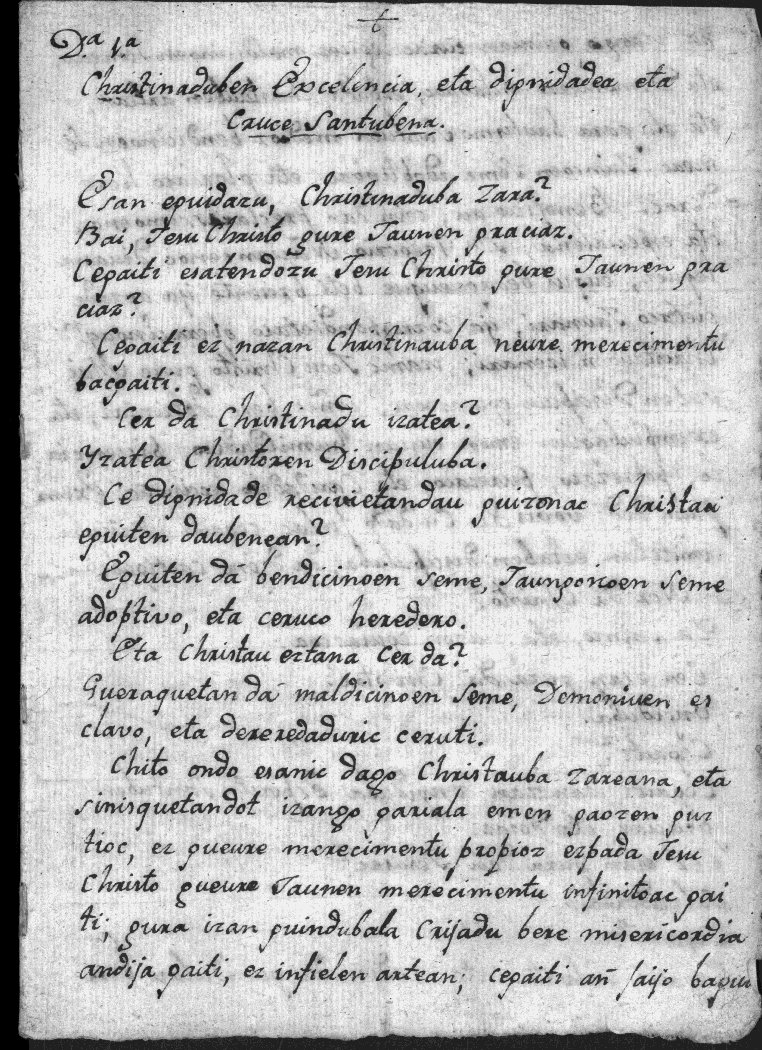 †
Da. 1.a
Christinaduben Excelencia, eta dignidadea eta
Cruce Santubena.
Esan eguidazu, Christinaduba zara?
Bai, Jesu Christo gure Jaunen graciaz.
Cegaiti esatendozu Jesu Christo gure Jaunen gra
ciaz?
Cegaiti ez nazan Christinauba neure merecimentu
bacgaiti.
Cer da Christinadu izatea?
Yzatea Christoren Discipuluba.
Ce dignidade recivietandau guizonac Christau
eguiten daubenean?
Eguiten dā bendicinoen seme, Jaungoicoen seme
adoptivo, eta ceruco heredero.
Eta Christau eztana cer da?
Gueraquetan dā maldicinoen seme, Demoniuen es
clavo, eta dereredaduric ceruti.
Chito ondo esanic dago Christauba zareana, eta
sinisquetandot izango gariala emen gaozen guz
tioc, ez gueure merecimentu propioz ezpada Jesu
Christo gueure Jaunen merecimentu infinitoac gai
ti; gura izan guindubala Crijadu bere misericordia
andija gaiti, ez infielen artean; cegaiti añ jaijo baguu